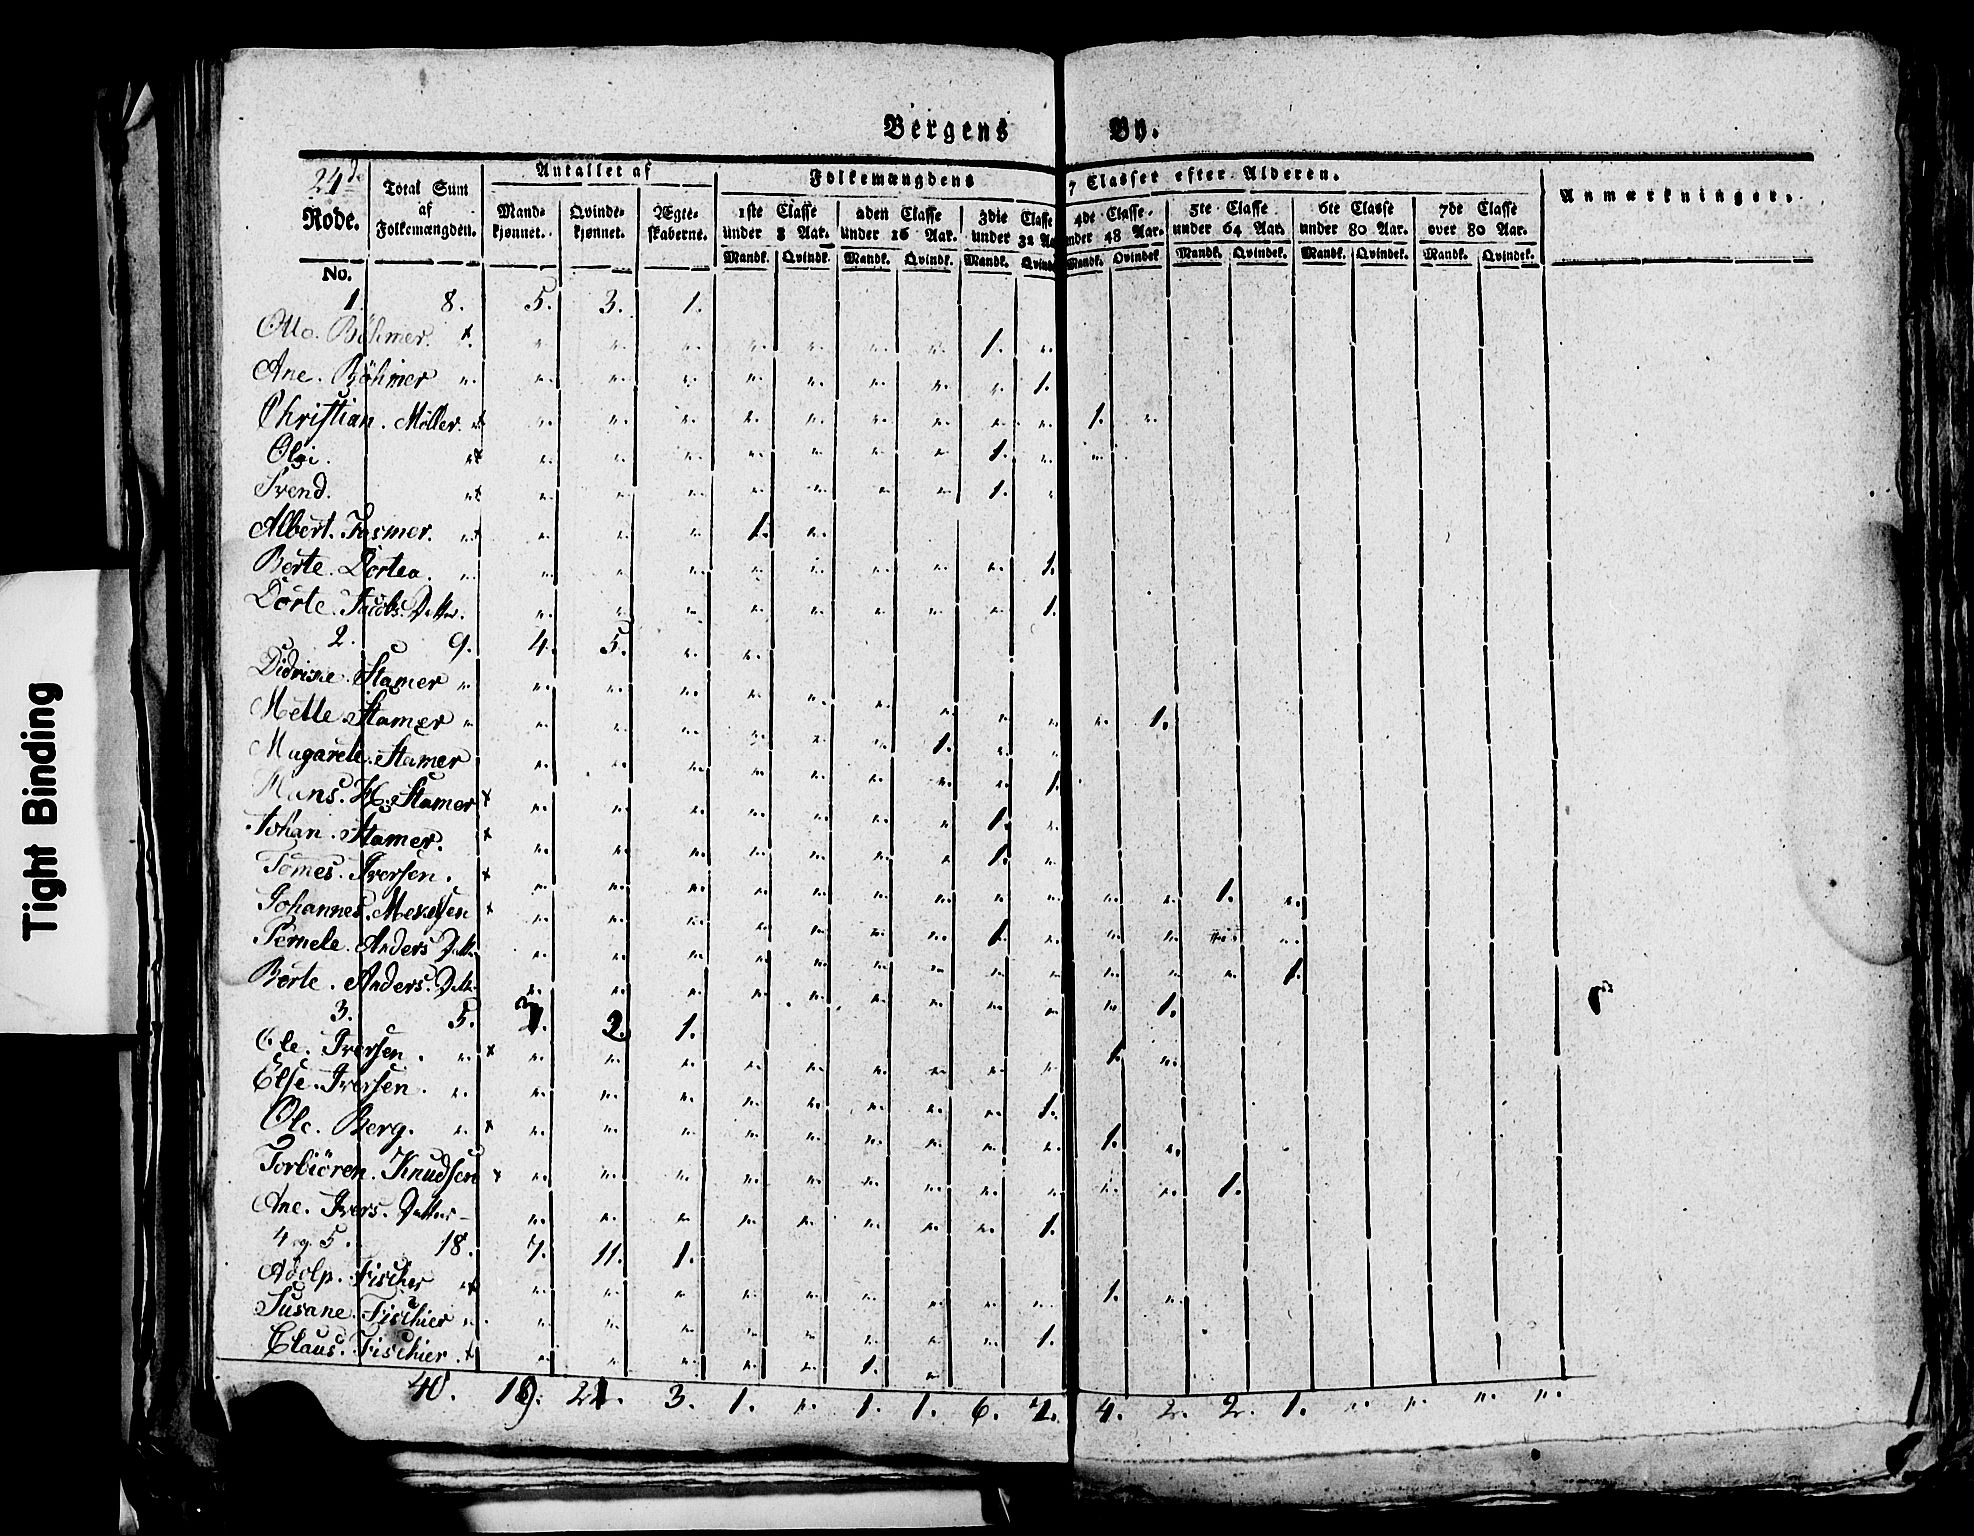 Bergens By.
24de Rode. Total Sum af Folkemængden. Antallet af Folkemængdens 7 Classer efter Alderen. Anmærkninger.
Mand-kjønnet. Qvinde-kjønnet. Ægte-skaberne. 1ste Classe under 8 Aar. 2den Classe under 16 Aar. 3die Classe under 32 Aar 4de Classe under 48 Aar. 5te Classe under 64 Aar. 6te Classe under 80 Aar. 7de Classe over 80 Aar.
No. Mandk. Qvindk. Mandk. Qvindk. Mandk. Qvindek Mandk. Qvindek Mandk. Qvindek. Mandk. Qvindek. Mandk. Qvindek.
1. 8. 5. 3. 1.
Otto. Böhmer. 1.
Ane. Böhmer 1.
Christian. Møller. 1.
Olai. 1.
Svend. 1.
Albert. 1.
Berte. Dortea. 1.
Dorte. Jacobs. Datter. 1.
2. 9. 4. 5.
Stamer
Mette. Stamer 1.
Magarete. Stamer 1.
Hans. H. Stamer 1.
Johan. Stamer. 1.
Tomes. Iversen.
Johannes. 1.
Pernele. Anders Datt.
Berte. Anders. Datt. 1.
3. 5. 3. 2. 1.
Ole. Iversen. 1.
Else. Iversen. 1.
Ole. Berg. 1.
Torbiören. Knudsen 1.
Ane. Ivers. Datter 1.
4 og 5. 18. 7. 11. 1.
Adolp. Fischer 1.
Susane. Fischier 1.
Claus. Fischier. 1.
40. 19. 21. 3. 1. ". 1. 1. 6. 7. 4. 2. 2. 1. ". ". ". ".
Tight Binding